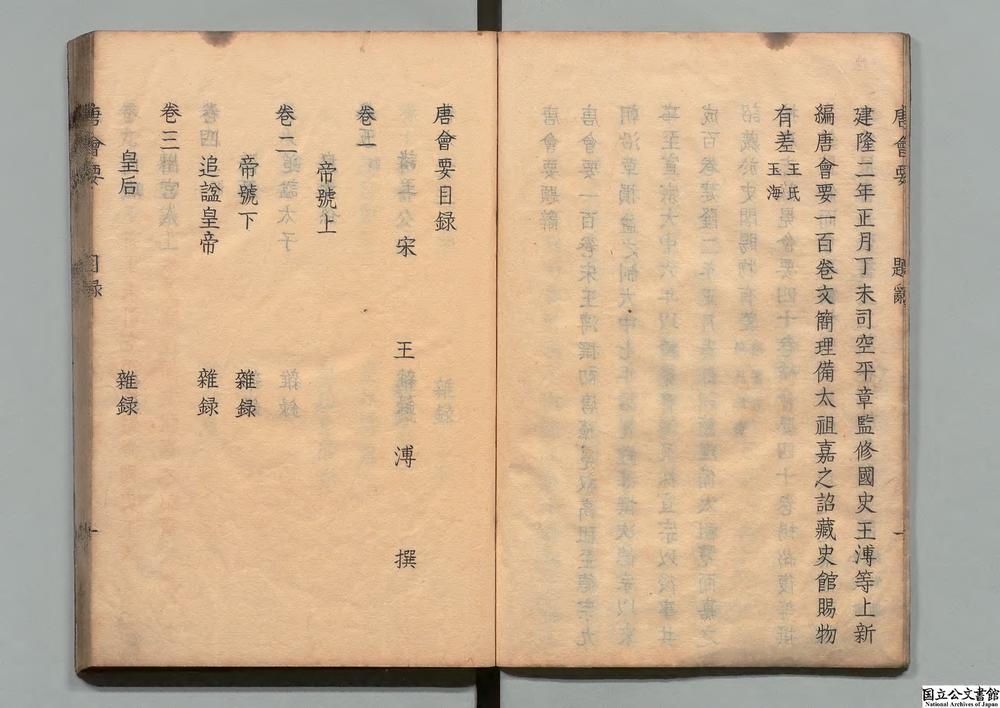 唐會要 題辭 一
建隆二年正月丁未司空平章監修國史王溥等上新
編唐會要一百卷文簡理備太祖嘉之詔藏史館賜物
有差王氏玉海
唐會要目録
宋 王 溥 撰
卷一
帝號上
卷二
帝號下 雜録
追諡皇帝 雜録
卷三
皇后 雜録
唐會要 目録 一
国立公文書館
National Archives of Japan